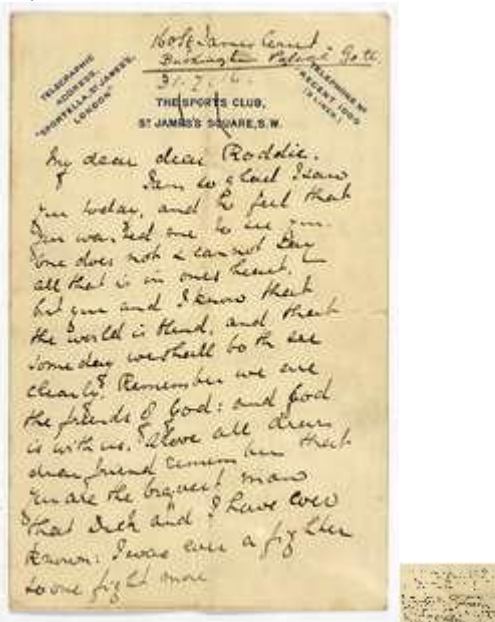 160 St James Court
Buckingham Palace Gate
31.7.16.
TELEGRAPHIC
ADDRESS,
"SPORTELLA, ST JAMES'S,
LONDON"
TELEPHONE No
REGENT 1000
THE SPORTS CLUB,
ST JAMES'S SQUARE, S.W.
My dear dear Roddie.
I am so glad I saw
you today, and to feel that
you wanted me to see you.
One does not & cannot say
all that is in ones heart.
but you and I know that
the world is blind, and that
some day we shall both see
clearly. Remember we are
the friends of God: and God
is with us. Above all dear
dear friend remember that
you are the bravest man
that Dick and I have ever
known: I was ever a fighter
so one fight more